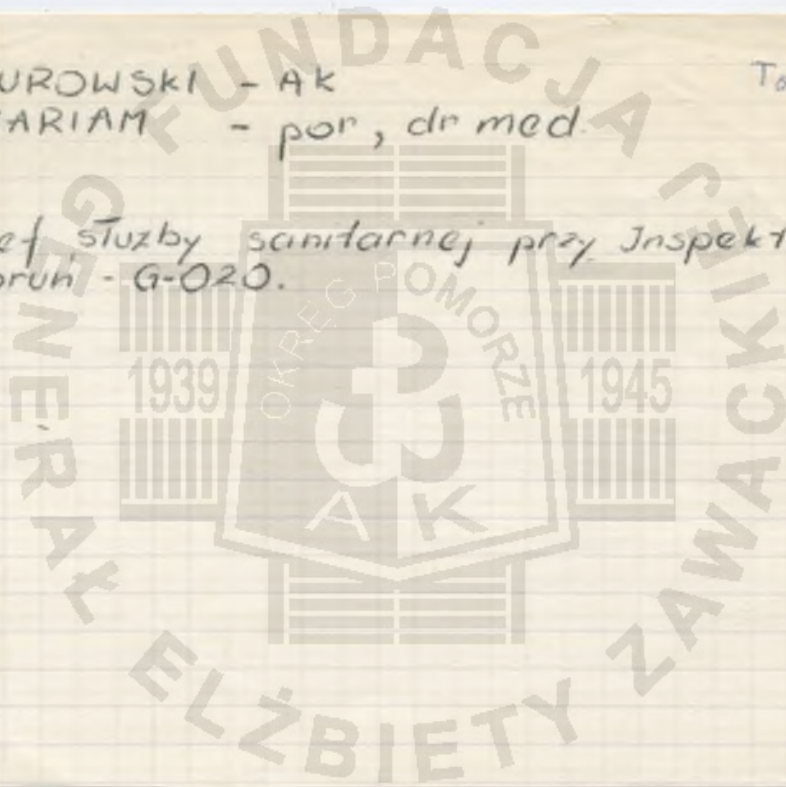 UROWSKI - AK
ARIAM - por, dr med.
To
ef służby sanitarnej przy Jnspekt
oruń - G-020.
FUNDACJA GENERAŁ ELŻBIETY ZAWACKIEJ
OKRĘG POMORZE
1939
1945
AK